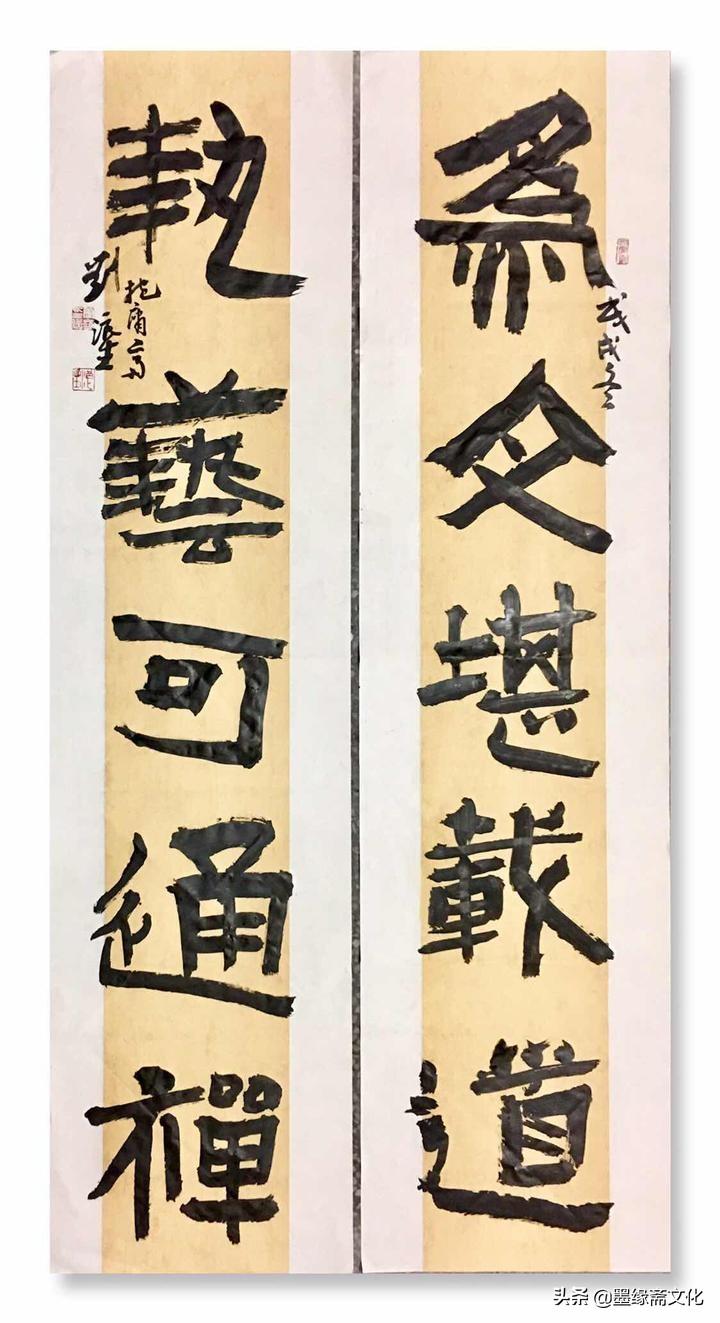 為文堪載道
戊戌冬
執藝可通禪
抱庸
劉
头条 @墨缘斋文化